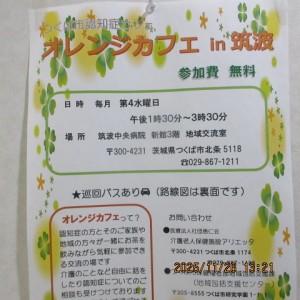 つくば市認知症カフェ
オレンジカフェ in 筑波
参加費 無料
日 時 毎月 第4水曜日
午後1時30分〜3時30分
場 所 筑波中央病院 新館3階 地域交流室
〒300-4231 茨城県つくば市北条 5118
☎029-867-1211
★巡回バスあり (路線図は裏面です)
オレンジカフェって?
認知症の方とそのご家族や
地域の方々が一緒にお茶を
飲みながら気軽に参加でき
る交流の場です
介護のことなど自由に話を
したり認知症についてのご
相談も受けつけております
お問い合わせ
医療法人社団恵仁会
介護老人保健施設アリエッタ
〒300-4231 つくば市北条 1174
(地域包括支援センター)
〒305-8555 つくば市研究学園1-1-1